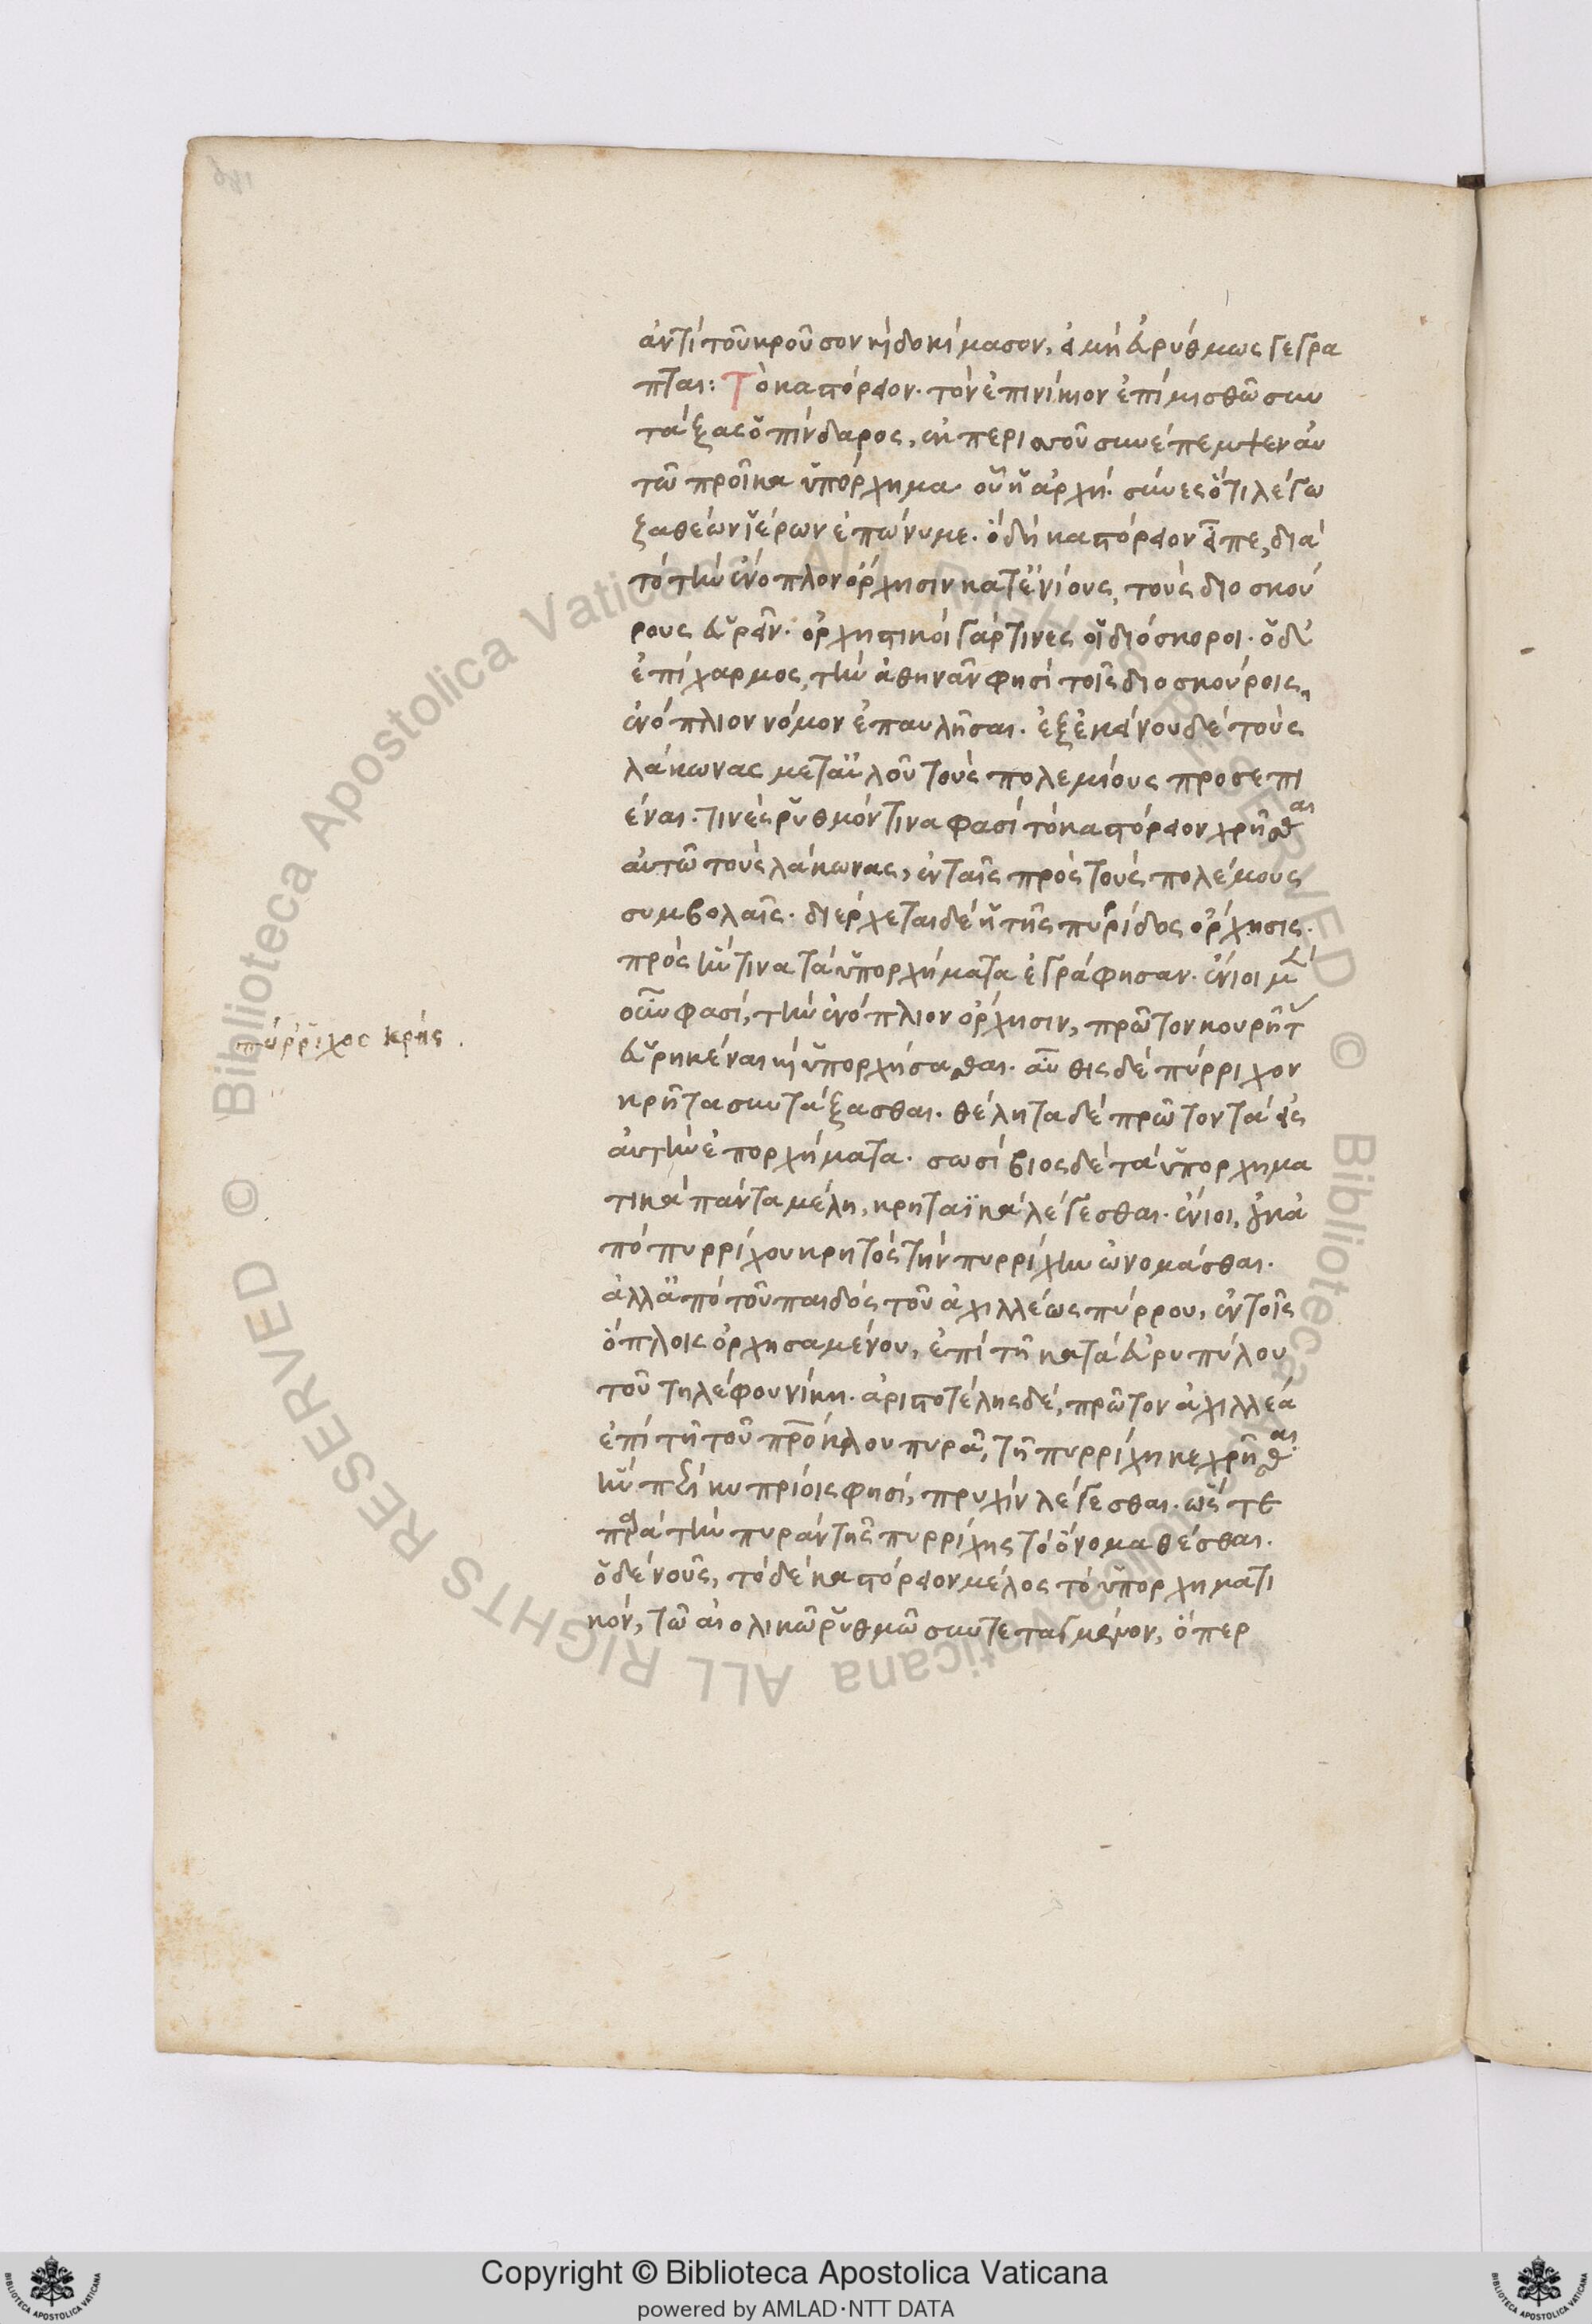 ἀντὶ τοῦ κροῦσον καὶ δοκίμασον, εἰ μὴ εὐρύθμως γέγρα
πται: Τὸ καστόρειον. τὸν ἐπινίκιον ἐπὶ μισθῶ συν
τάξας ὁ πίνδαρος, ἐκ περιττοῦ συνέπεμψεν αὐ
τῶ προῖκα ὑπόρχημα οὗ ἡ ἀρχή. σύνες ὅτι λέγω
ζαθέων ἱέρων ἐπώνυμε. ὃ δὴ καστόρειον εἶπε, διὰ
τὸ τὴν ἐνόπλον ὄρχησιν κατ' ἐνίους, τοὺς διοσκού
ρους εὑρεῖν. ὀρχηστικοὶ γάρ τινες οἱ διόσκοροι. ὁ δὲ
ἐπίχαρμος, τὴν ἀθηνᾶν φησὶ τοῖς διοσκούροις,
ἐνόπλιον νόμον ἐπαυλῆσαι. ἐξ ἐκείνου δὲ τοὺς
λάκωνας μετ' αὐλοῦ τοὺς πολεμίους προσεπι
έναι. τινὲς ῥυθμόν τινα φασὶ τὸ καστόρειον χρῆσθαι
αὐτῶ τοὺς λάκωνας, ἐν ταῖς πρὸς τοὺς πολέμους
συμβολαῖς. διέρχεται δὲ ἡ τῆς πυρίδος ὄρχησις.
πρὸς ἥν τινα τὰ ὑπορχήματα ἐγράφησαν. ἔνιοι μὲν
οὖν φασί, τὴν ἐνόπλιον ὄρχησιν, πρῶτον κουρῆτας
εὑρηκέναι καὶ ὑπορχήσασθαι. αὖθις δὲ πύρριχον
κρῆτα συντάξασθαι. θέλητα δὲ πρῶτον τὰ εἰς
αὐτὴν ἐπορχήματα. σωσίβιος δὲ τὰ ὑπορχημα
τικὰ πάντα μέλη, κρηταϊκὰ λέγεσθαι. ἔνιοι, οὐκ ἀ
πὸ πυρρίχου κρητὸς τὴν πυρρίχην ὠνομάσθαι.
ἀλλ' ἀπὸ τοῦ παιδὸς τοῦ ἀχιλλέως πύρρου, ἐν τοῖς
ὅπλοις ὀρχησαμένου, ἐπὶ τῆ κατὰ εὐρυπύλου
τοῦ τηλέφου νίκη. ἀριστοτέλης δέ, πρῶτον ἀχιλλέα
ἐπὶ τῆ τοῦ πατρόκλου πυρᾶ, τῆ πυρρίχη κεχρῆσθαι
ἣν παρὰ κυπρίοις φησί, πρυχὶν λέγεσθαι. ὥστε
παρὰ τὴν πυρὰν τῆς πυρρίχης τὸ ὄνομα θέσθαι.
ὁ δὲ νοῦς, τὸ δὲ καστόρειον μέλος τὸ ὑπορχηματι
κόν, τῶ αἰολικῶ ῥυθμῶ συντεταγμένον, ὅπερ
πύρριχος κρής.
Copyright © Biblioteca Apostolica Vaticana
powered by AMLAD·NTT DATA